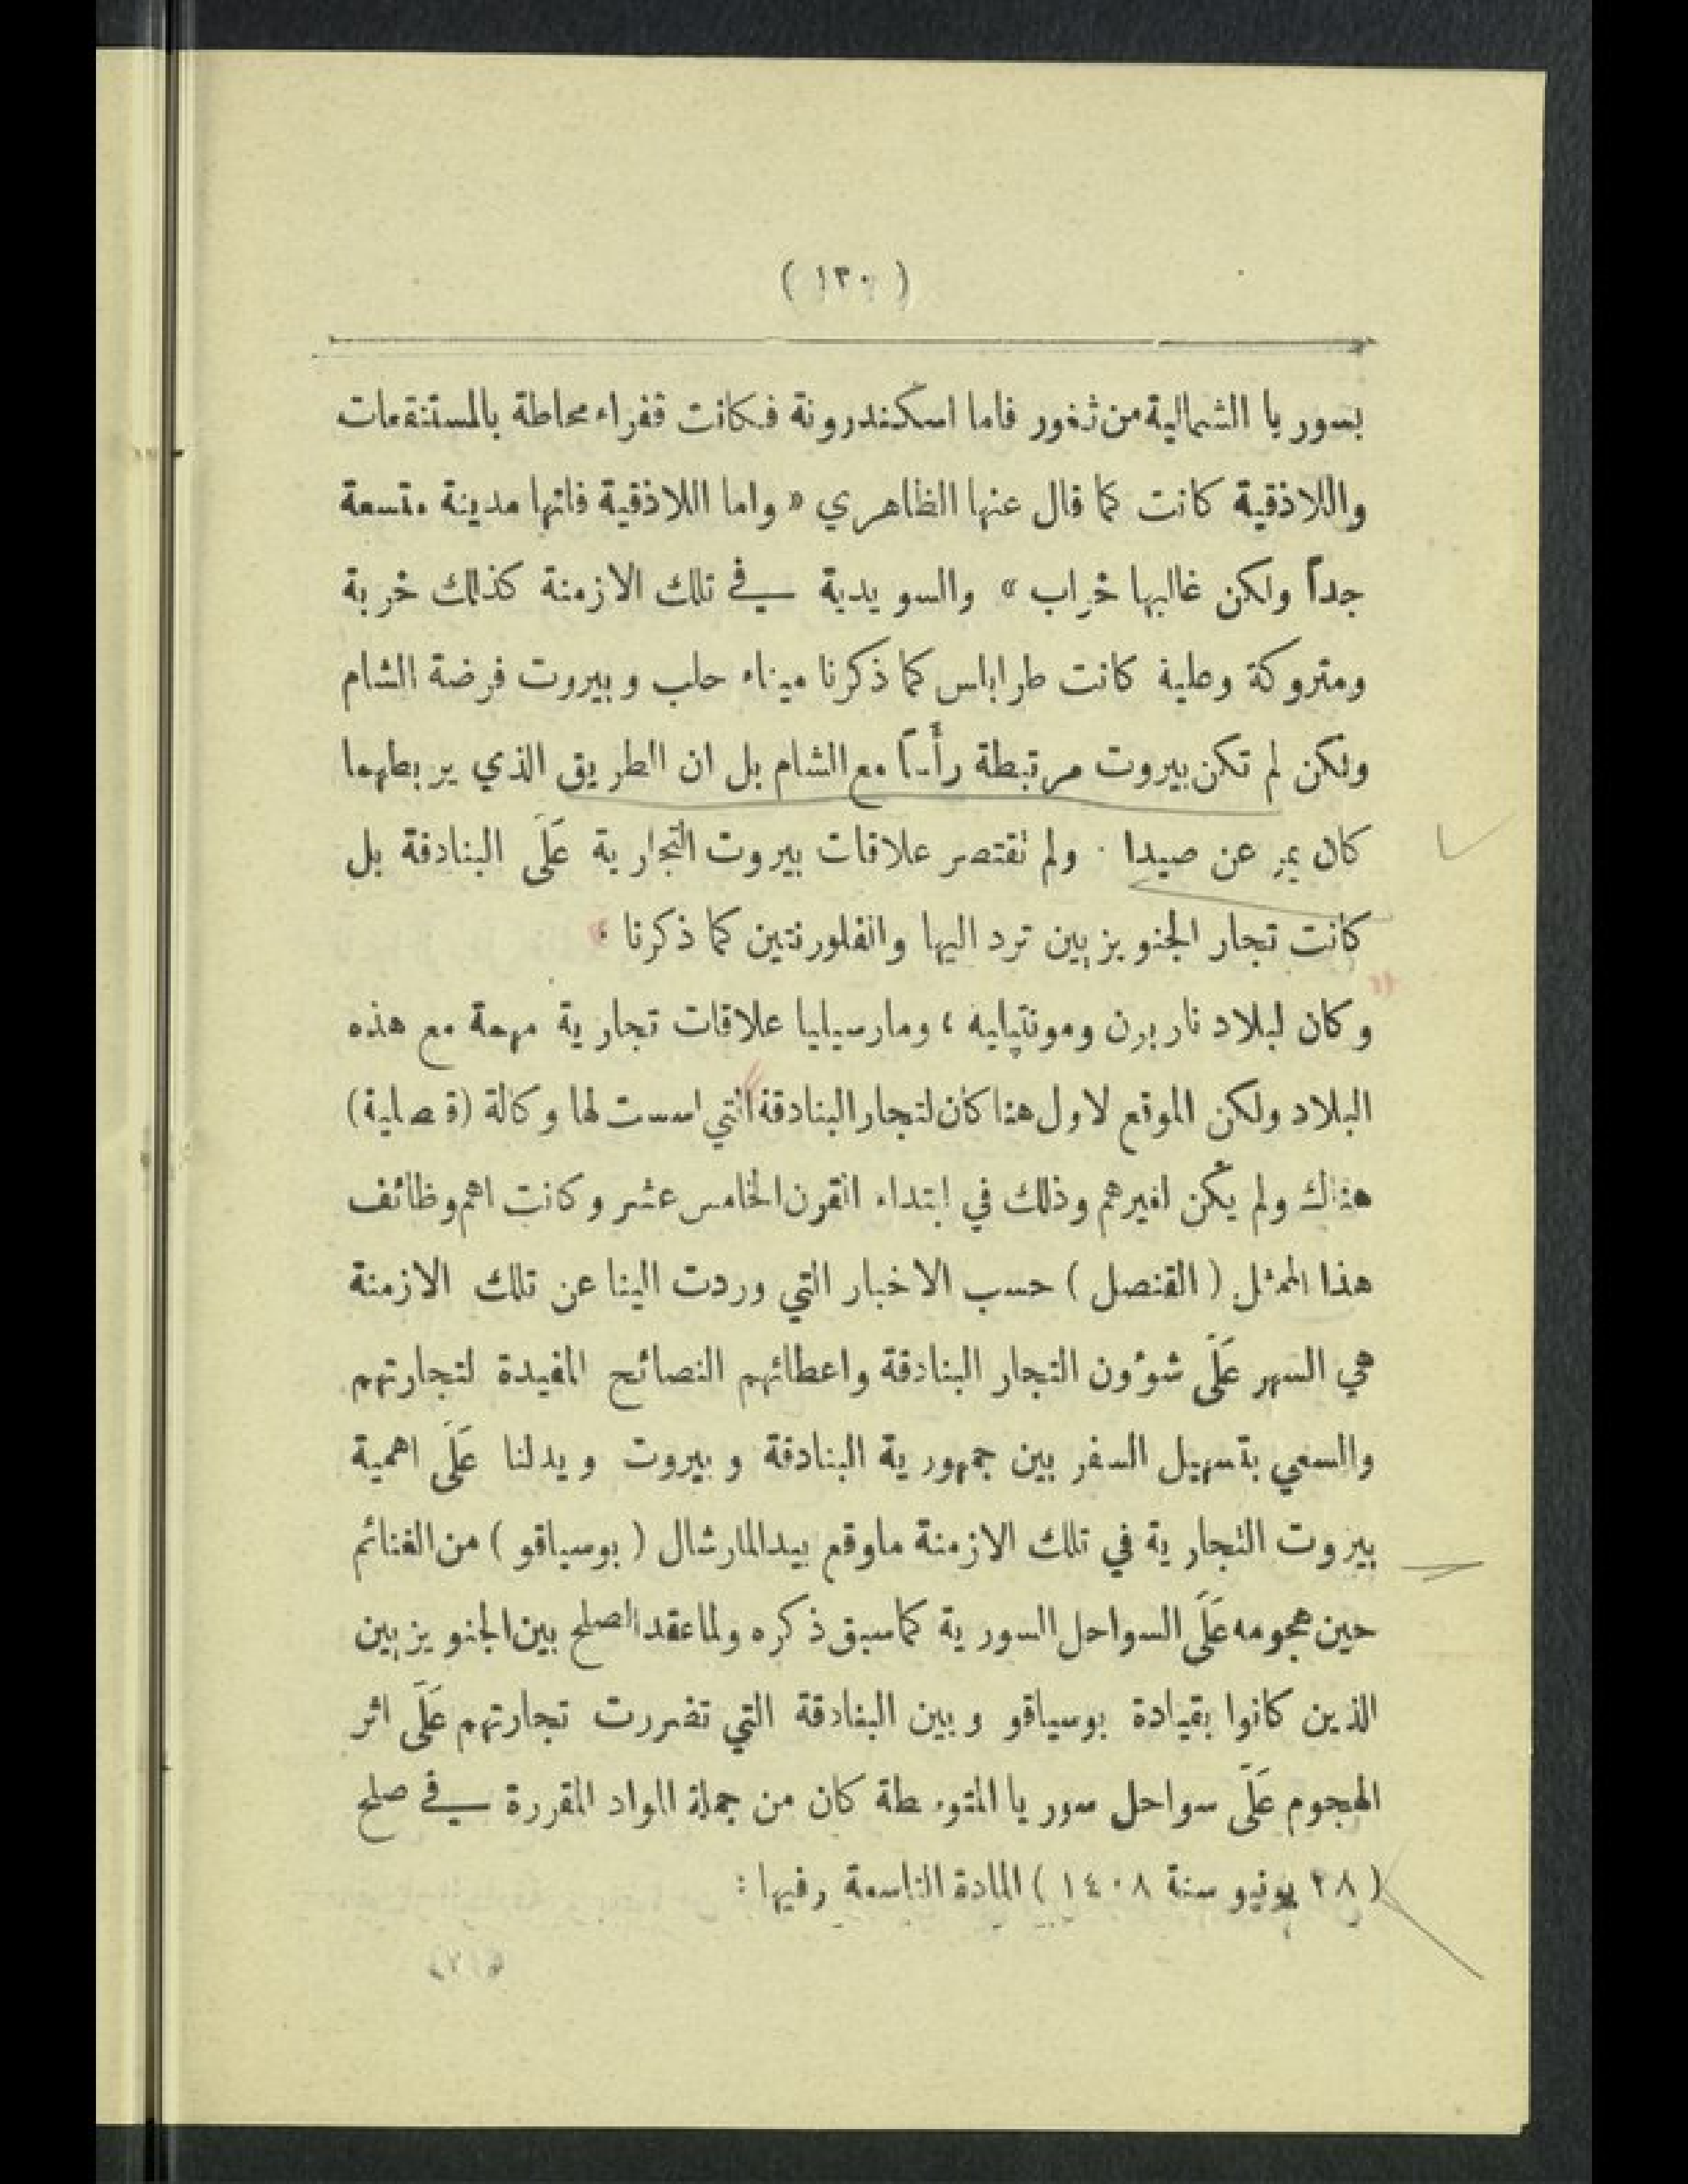 ( ١٣٠ )
بسوريا الشمالية من ثغور فاما اسكندرونة فكانت قفراء محاطة بالمستنقعات
واللاذقية كانت كما قال عنها الظاهري « واما اللاذقية فانها مدينة متسعة
جداً ولكن غالبها خراب » والسويدية في تلك الازمنة كذلك خربة
ومتروكة وعليه كانت طرابلس كما ذكرنا ميناء حلب وبيروت فرضة الشام
ولكن لم تكن بيروت مرتبطة رأساً مع الشام بل ان الطريق الذي يربطهما
كان يمر عن صيدا . ولم تقتصر علاقات بيروت التجارية عَلَى البنادقة بل
كانت تجار الجنويزيين ترد اليها والفلورنتين كما ذكرنا .
وكان لبلاد ناربرن ومونتپليه ، ومارسيليا علاقات تجارية مهمة مع هذه
البلاد ولكن الموقع لاول هنا كان لتجار البنادقة التي اسست لها وكالة (قنصلية)
هناك ولم يكن لغيرهم وذلك في ابتداء القرن الخامس عشر وكانت اهم وظائف
هذا الممثل ( القنصل ) حسب الاخبار التي وردت الينا عن تلك الازمنة
هي السهر عَلَى شؤون التجار البنادقة واعطائهم النصائح المفيدة لتجارتهم
والسعي بتسهيل السفر بين جمهورية البنادقة وبيروت ويدلنا عَلَى اهمية
بيروت التجارية في تلك الازمنة ماوقع بيد المارشال ( بوسياقو ) من الغنائم
حين هجومه عَلَى السواحل السورية كما سبق ذكره ولما عقد الصلح بين الجنويزيين
الذين كانوا بقيادة بوسياقو وبين البنادقة التي تضررت تجارتهم عَلَى اثر
الهجوم عَلَى سواحل سوريا المتوسطة كان من جملة المواد المقررة في صلح
( ٢٨ يونيو سنة ١٤٠٨ ) المادة التاسعة وفيها :